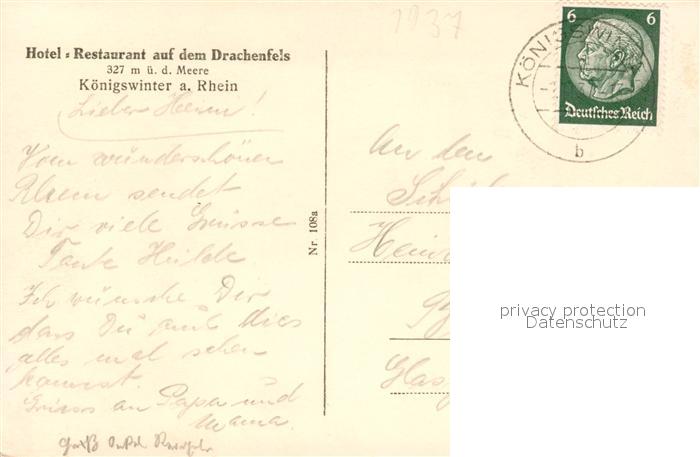 1937
Hotel = Restaurant auf dem Drachenfels
327 m ü. d. Meere
Königswinter a. Rhein
Lieber Heinz!
Vom wunderschönen
Rhein sendet
Dir viele Grüsse
Tante Hilde
Ich wünsche Dir
dass Du auch dies
alles mal sehen
kannst.
Gruss an Papa und
Mama.
Gruß Onkel
Nr. 108a
6 6
Deutsches Reich
KÖNIGSWIN
b
An den
Heinr
privacy protection
Datenschutz